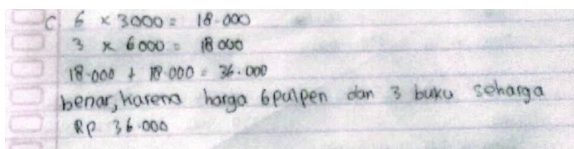 C 6 x 3000 = 18.000
3 x 6000 = 18000
18.000 + 18.000 = 36.000
benar, karena harga 6 pulpen dan 3 buku seharga
RP 36.000